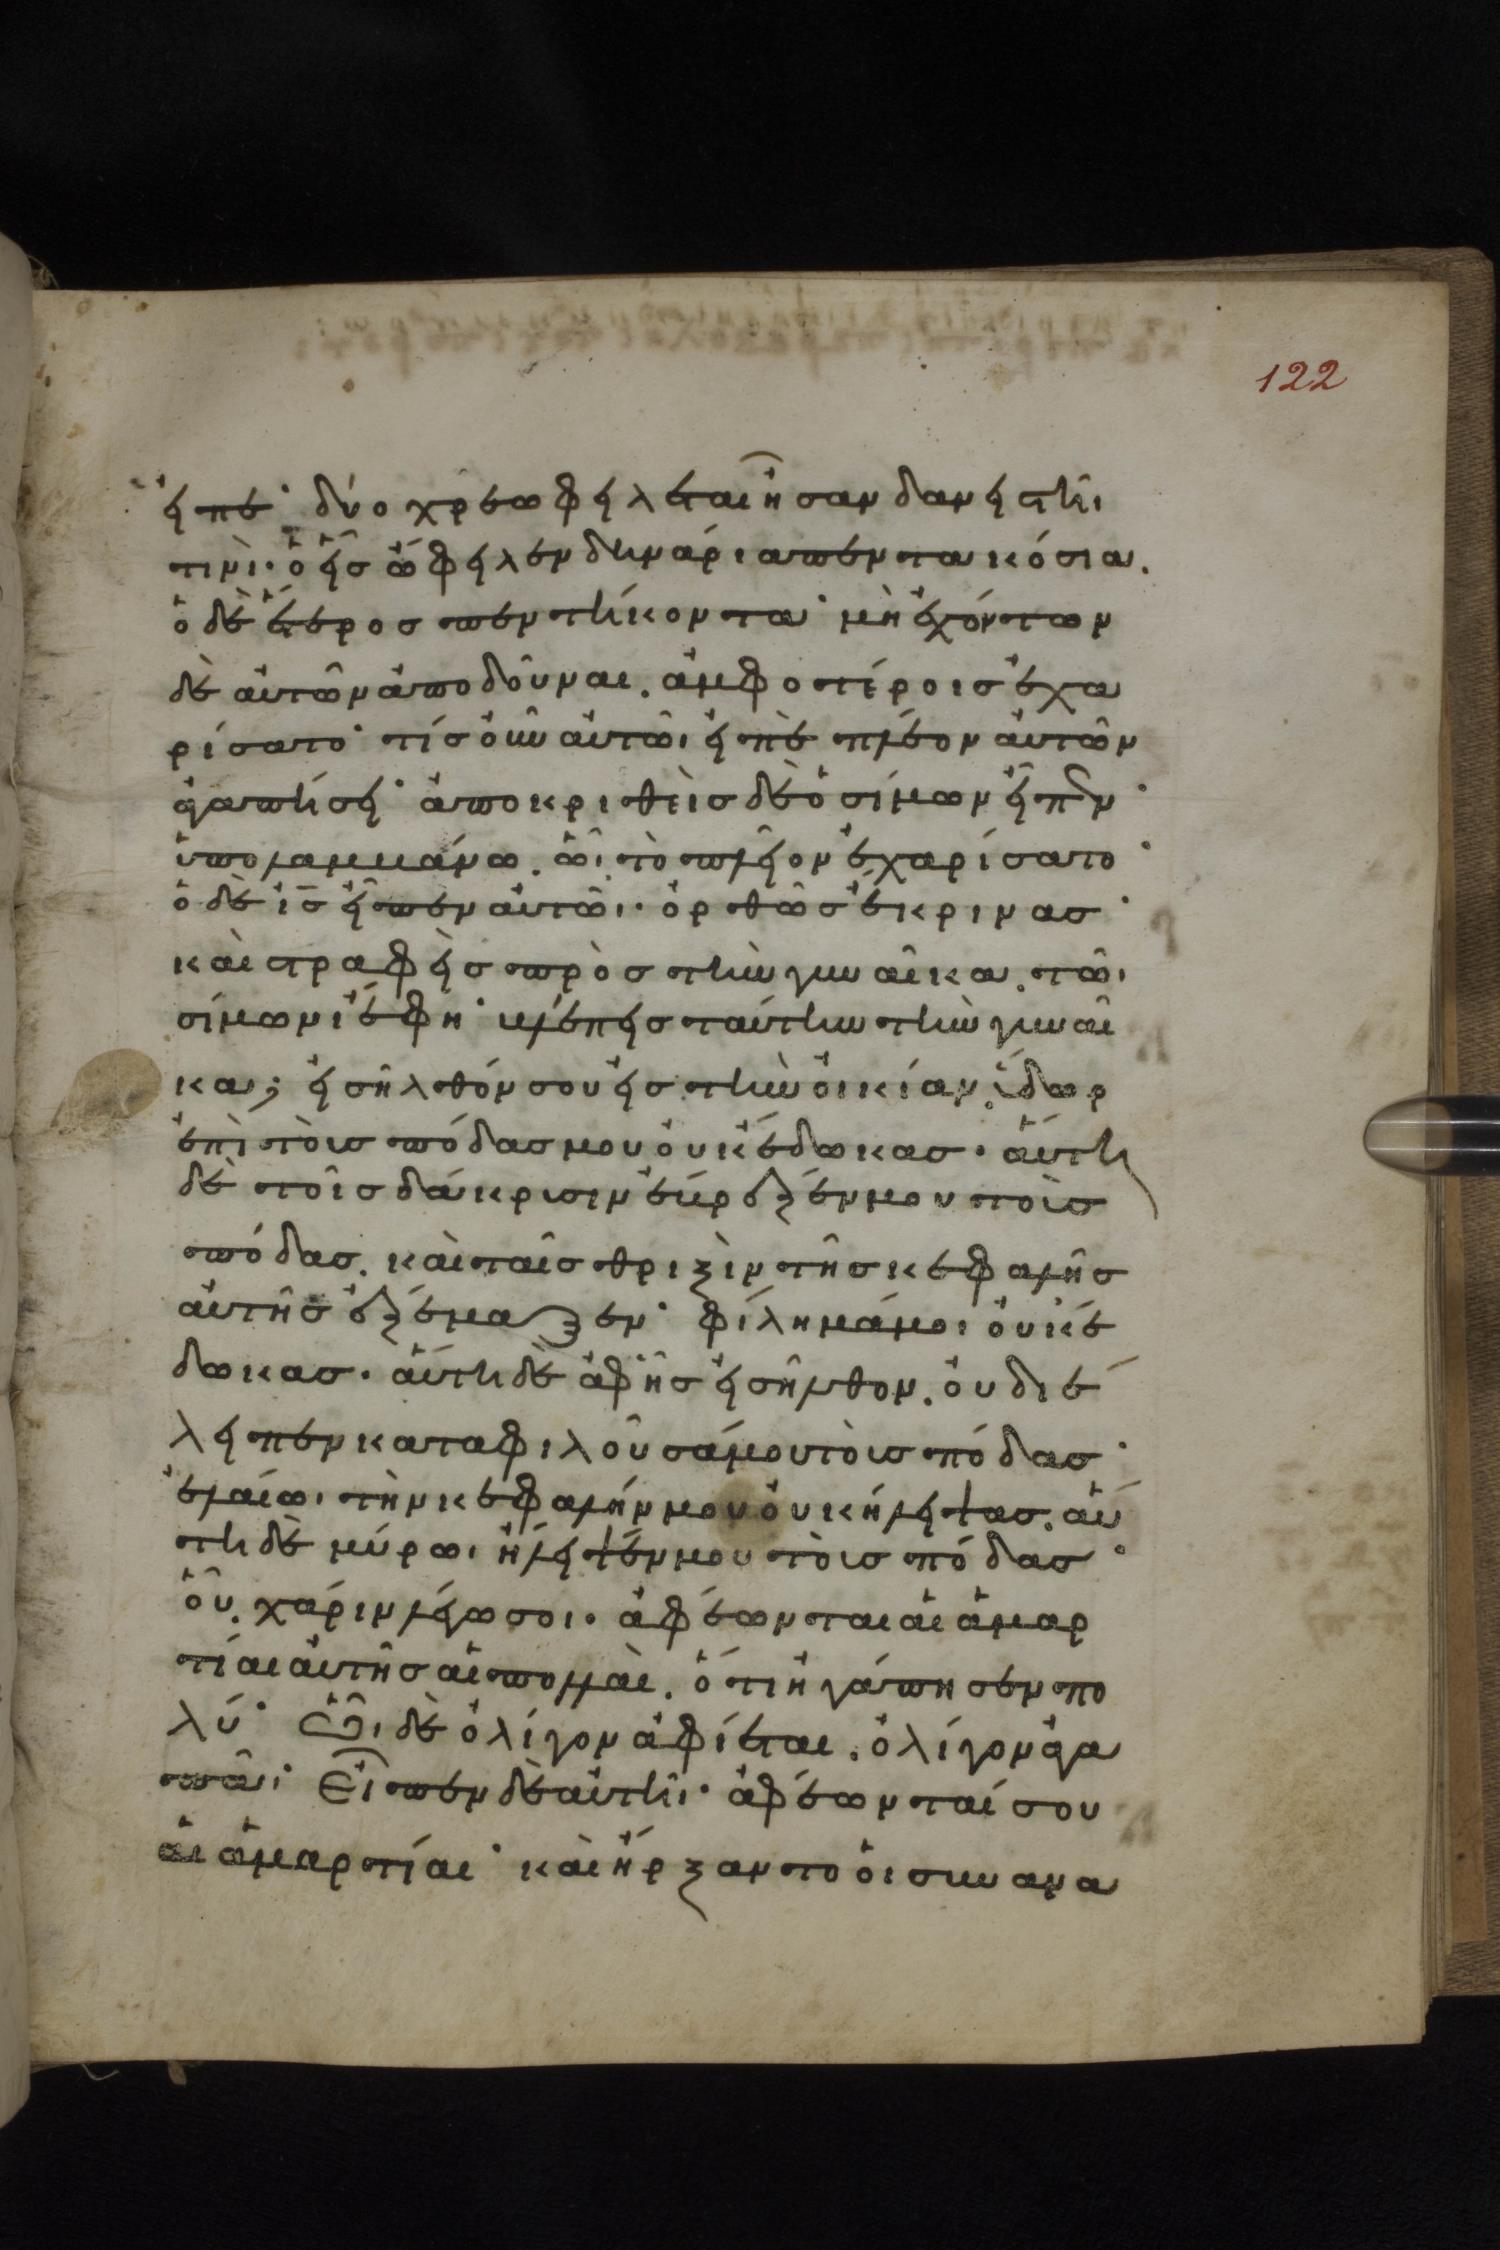 122
εἰπέ· δύο χρεωφειλέται ἦσαν δανειστῆι
τινὶ· ὁ εἷς ὤφειλεν δηνάρια πεντακόσια.
ὁ δὲ ἕτερος πεντήκοντα· μὴ ἐχόντων
δὲ αὐτῶν ἀποδοῦναι. ἀμφοτέροις ἐχα
ρίσατο· τίς οὖν αὐτῶι εἰπὲ πλέον αὐτῶν
ἀγαπήσει· ἀποκριθεὶς δὲ ὁ σίμων εἶπεν·
ὑπολαμβάνω. ὧι τὸ πλεῖον ἐχαρίσατο·
ὁ δὲ ις̅ εἶπεν αὐτῶι· ὀρθῶς ἔκρινας·
καὶ στραφεὶς πρὸς τὴν γυναῖκα. τῶι
σίμωνι ἔφη· βλέπεις ταύτην τὴν γυναῖ
κα; εἰσῆλθόν σου εἰς τὴν οἰκίαν. ὕδωρ
ἐπὶ τοὺς πόδας μου οὐκ ἔδωκας· αὕτη
δὲ τοῖς δάκρυσιν ἔβρεξέν μου τοὺς
πόδας. καὶ ταῖς θριξὶν τῆς κεφαλῆς
αὐτῆς ἐξέμαξεν· φίλημά μοι οὐκ ἔ
δωκας· αὕτη δὲ ἀφ' ἧς εἰσῆλθον. οὐ διέ
λειπεν καταφιλοῦσά μου τοὺς πόδας·
ἐλαίωι τὴν κεφαλήν μου οὐκ ἤλειψας. αὕ
τη δὲ μύρωι ἤλειψέν μου τοὺς πόδας·
οὗ. χάριν λέγω σοι· ἀφέωνται αἱ ἁμαρ
τίαι αὐτῆς αἱ πολλαὶ. ὅτι ἠγάπησεν πο
λύ· Ὧι δὲ ὀλίγον ἀφίεται. ὀλίγον ἀγα
πᾶι· Εἶπεν δὲ αὐτῆι· ἀφέωνταί σου
αἱ ἁμαρτίαι· καὶ ἤρξαντο οἱ συνανα